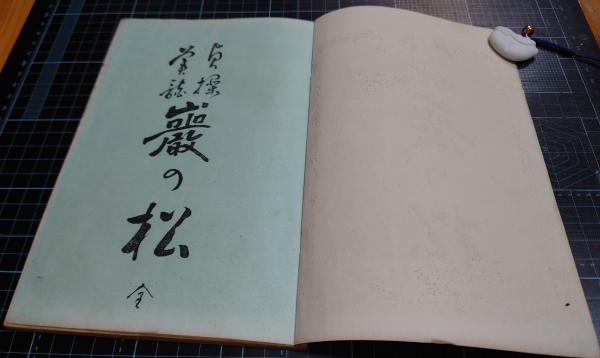 貞操
美談
巖の松
全